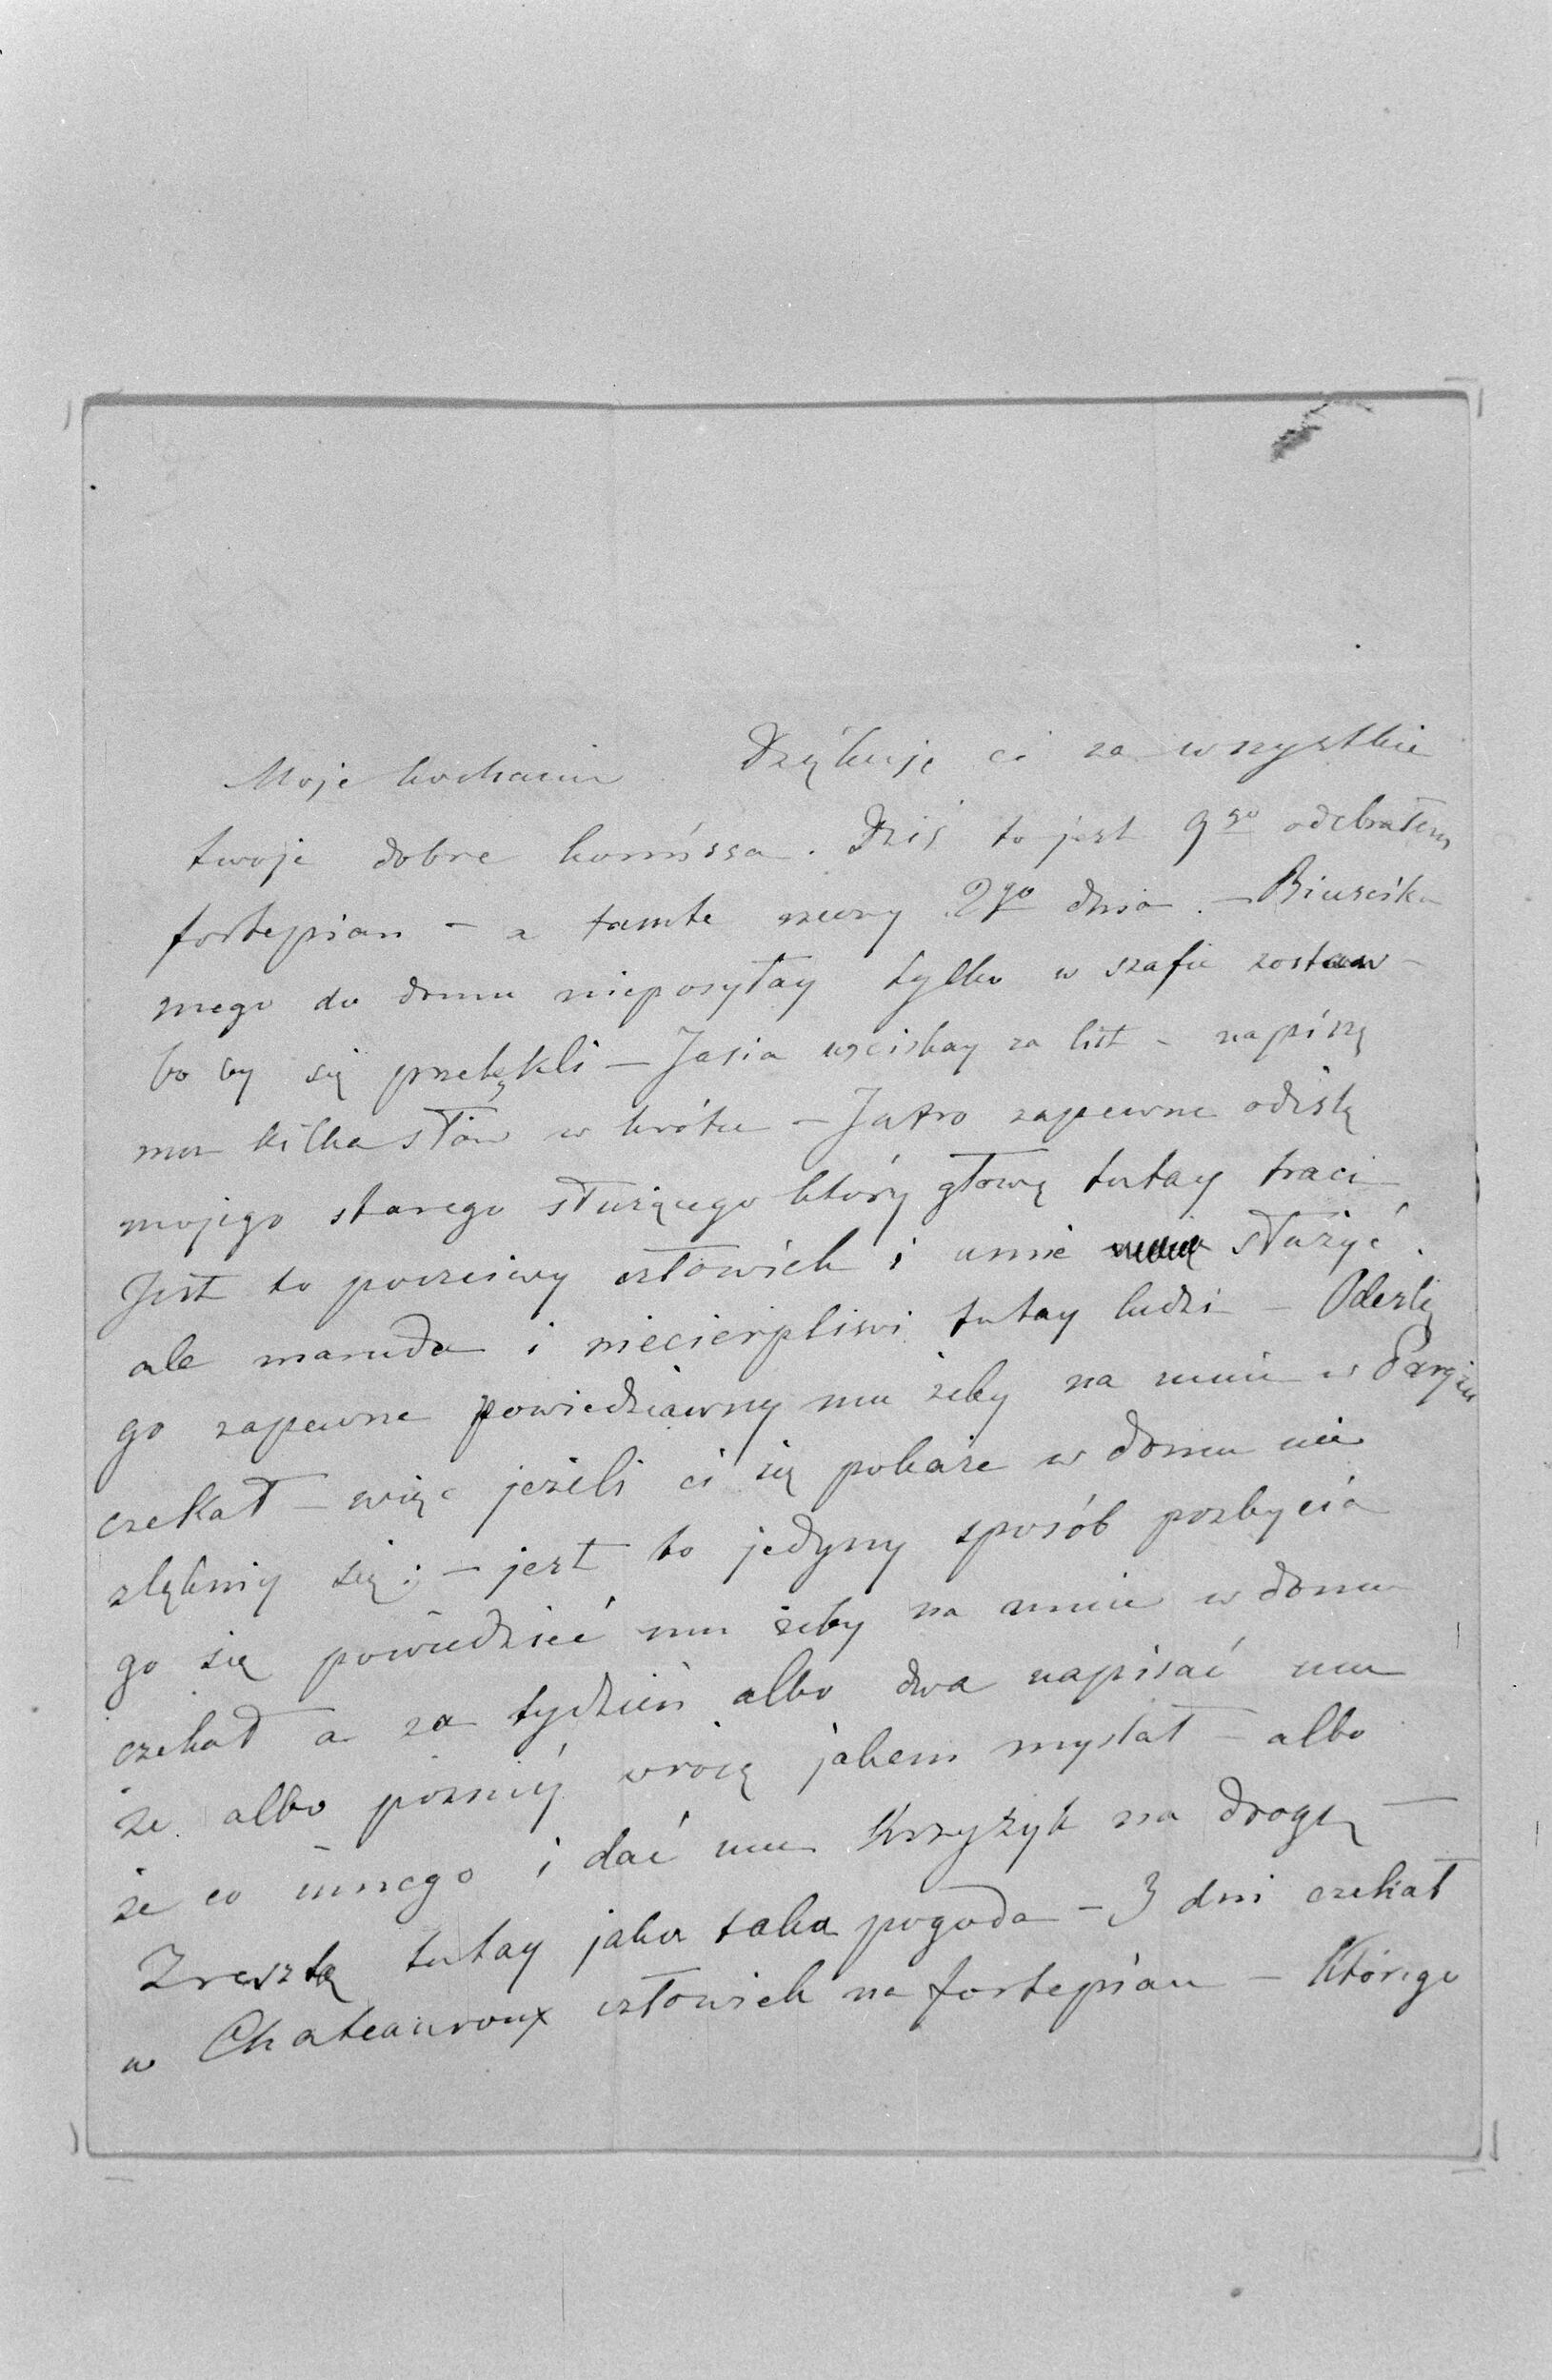 Moje kochanie Dzękuję ci za wszystkie
twoje dobre komissa. Dziś to jest 9go odebrałem
fortepian – a tamte rzeczy 2go dnia. – Biuścika
mego do domu nieposyłay tylko w szafie zostaw –
bo by się przelękli – Jasia uściskay za list – napiszę
mu kilka słów wkrótce – Jutro zapewne odeszlę
mojego starego służącego który głowę tutay traci
Jest to poczciwy człowiek i umie służyć.
ale maruda i niecierpliwi tutay ludzi – Odeszlę
go zapewne powiedziawszy mu żeby na mnie w Paryżu
czekał – więc jeżeli ci się pokaże w domu nie
zlęknij się; – jest to jedyny sposób pozbycia
go się powiedzieć mu żeby na mnie w domu
czekał a za tydzień albo dwa napisać mu
że albo pozniéj wrócę jakem myslał – albo
że co innego i dać mu Krzyżyk na drogę –
Zresztą tutay jaka taka pogoda – 3 dni czekał
w Chateauroux człowiek na fortepian – Którego